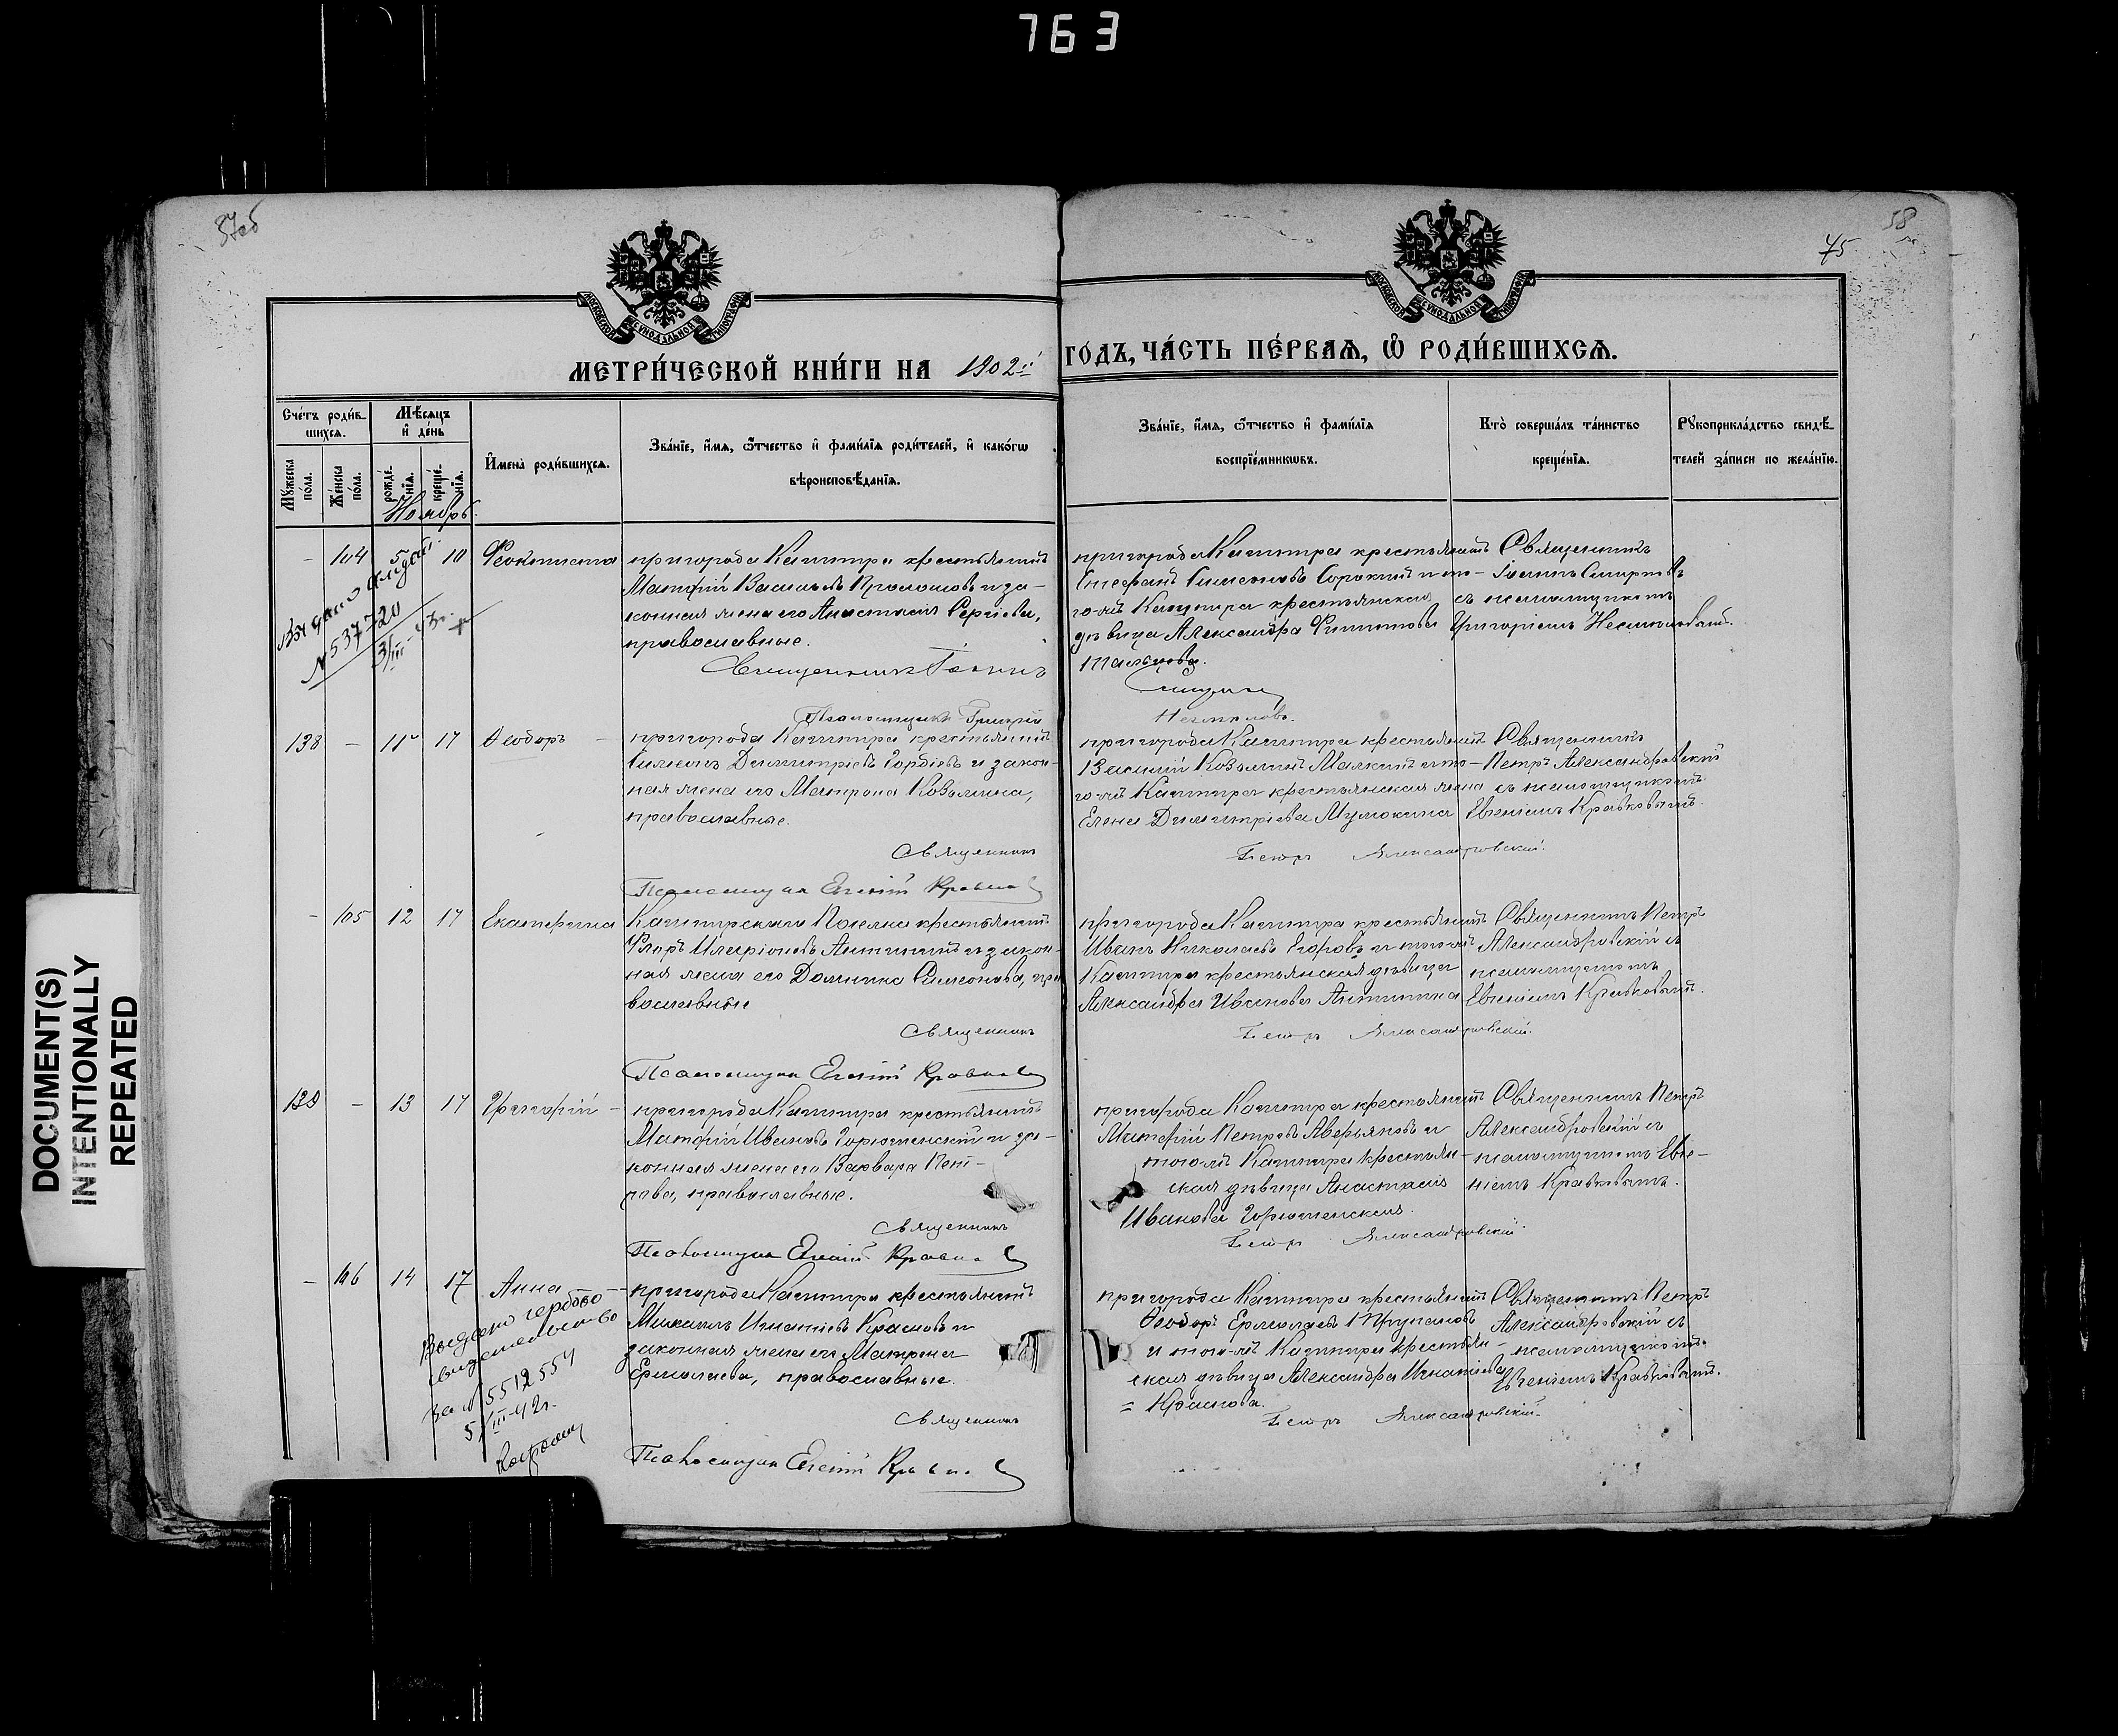 763
37об
58
45
МОСКОВСКОЙ СѴНОДАЛЬНОЙ ТИПОГРАФІИ
МОСКОВСКОЙ СѴНОДАЛЬНОЙ ТИПОГРАФІИ
МЕТРИ́ЧЕСКОЙ КНИ́ГИ НА 1902й ГОДЪ, ЧА́СТЬ ПЕ́РВАѦ, Ѽ РОДИ́ВШИХСѦ.
Счéтъ роди́в-
шихсѧ.
Мꙋ́жеска по́ла.
Же́нска по́ла.
Мѣ́сѧцъ и҆ де́нь
рожде́-нїѧ.
креще́-нїѧ.
Ноябрь.
И҆мена̀ роди́вшихсѧ.
Зва́нїе, и҆́мѧ, ѻ҆́тчество и҆ фами́лїѧ роди́телей, и҆ како́гѡ
вѣроисповѣ́данїѧ.
Зва́нїе, и҆́мѧ, ѻ҆́тчество и҆ фами́лїѧ
воспрїе́мникѡвъ.
Кто̀ соверша́лъ та́инство
креще́нїѧ.
Рꙋкоприкла́дство свидѣ́-
телей за́писи по жела́нїю.
- 104 5 10 Феоктиста
пригорода Каштира крестьянинъ
Матфій Васильевъ и за-
конная жена его Анастасія Сергіева,
православные.
Священникъ Іоаннъ
Псаломщикъ Григорій
пригорода Каштира крестьянинъ
Стефанъ Симеоновъ Сорокинъ и то-
го-жъ Каштира крестьянская
дѣвица Александра Филиппова
Священникъ
Іоаннъ Смирновъ
съ псаломщикомъ
Григоріемъ
Выдано
N 537720
3/III-43г.
138 - 11 17 Ѳеодоръ -
пригорода Каштира крестьянинъ
Симеонъ Димитріевъ Гордѣевъ и закон-
ная жена его Матрона Козьмина,
православные.
Священникъ
Псаломщикъ Евгеній Кравков
пригорода Каштира крестьянинъ
Василій Козьминъ Малкинъ и то-
го-жъ Каштира крестьянская жена
Елена Димитріева
Петръ Александровскій.
Священникъ
Петръ Александровскій
съ псаломщикомъ
Евгеніемъ Кравковымъ.
- 105 12 17 Екатерина
Каштирскаго Поселка крестьянинъ
Флоръ Иларіоновъ Антипинъ и закон-
ная жена его Домника Симеонова, пра
вославные
Священникъ
Псаломщикъ Евгеній Кравков
пригорода Каштира крестьянинъ
Иванъ Николаевъ Егоровъ и того-жъ
Каштира крестьянская дѣвица
Александра Иванова Антипина
Петръ Александровскій.
Священникъ Петръ
Александровскій съ
псаломщикомъ
Евгеніемъ Кравковымъ.
139 - 13 17 Григорій -
пригорода Каштира крестьянинъ
Матфій Ивановъ и за-
конная жена его Варвара Пет-
рова, православные.
Священникъ
Псаломщикъ Евгеній Кравков
пригорода Каштира крестьянинъ
Матфій Петровъ Аверьяновъ и
того-жъ Каштира крестьян-
ская дѣвица Анастасія
Иванова
Петръ Александровскій
Священникъ Петръ
Александровскій съ
псаломщикомъ Евге-
ніемъ Кравковымъ.
- 106 14 17 Анна -
пригорода Каштира крестьянинъ
Михаилъ Игнатіевъ Красновъ и
законная жена его Матрона
Ермолаева, православные.
Священникъ
Псаломщикъ Евгеній Кравков
пригорода Каштира крестьянинъ
Ѳеодоръ Ермолаевъ
и того-жъ Каштира крестьян-
ская дѣвица Александра Игнатіева
= Краснова.
Петръ Александровскій.
Священникъ Петръ
Александровскій съ
псаломщикомъ
Евгеніемъ Кравковымъ.
Выдано
свидетельство
за N 5512554
5/III-42г.
DOCUMENT(S)
INTENTIONALLY
REPEATED